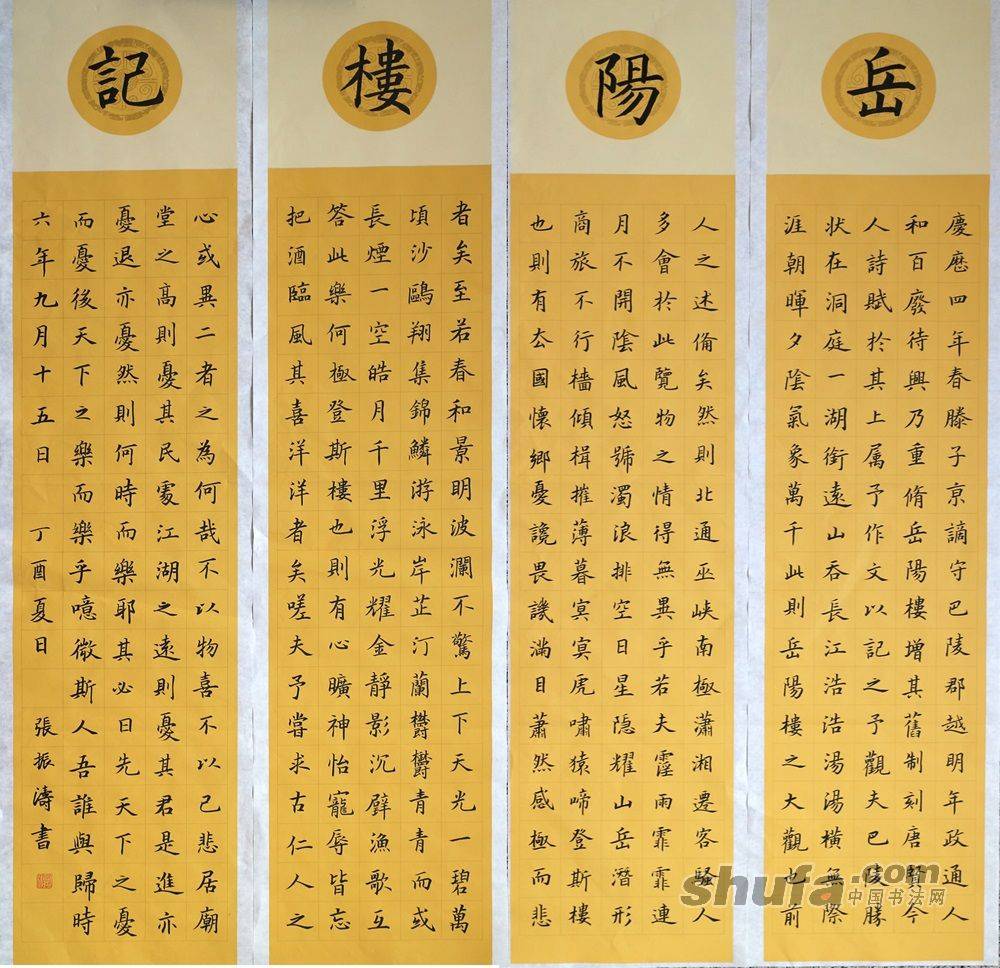 岳陽樓記
慶厯四年春滕子亰謫守巴陵郡越明年政通人
和百廢待興乃重脩岳陽樓增其舊制刻唐賢今
人詩賦於其上属予作文以記之予觀夫巴陵勝
状在洞庭一湖銜遠山吞長江浩浩湯湯橫無際
涯朝暉夕陰氣象萬千此則岳陽樓之大觀也前
人之述俻矣然則北通巫峽南極瀟湘遷客騷人
多會於此覽物之情得無異乎若夫霪雨霏霏連
月不開陰風怒號濁浪排空日星隐耀山岳潛形
商旅不行檣傾楫摧薄暮冥冥虎嘯猿啼登斯樓
也則有厺國懷鄉憂讒畏譏滿目蕭然感極而悲
者矣至若春和景明波瀾不驚上下天光一碧萬
頃沙鷗翔集錦鱗游泳岸芷汀蘭欝欝青青而或
長煙一空皓月千里浮光耀金靜影沉璧漁歌互
答此樂何極登斯樓也則有心曠神怡寵辱皆忘
把酒臨風其喜洋洋者矣嗟夫予嘗求古仁人之
心或異二者之為何哉不以物喜不以己悲居廟
堂之高則憂其民處江湖之遠則憂其君是進亦
憂退亦憂然則何時而樂耶其必曰先天下之憂
而憂後天下之樂而樂乎噫微斯人吾誰與歸時
六年九月十五日 丁酉夏日 張振濤書
shufa.com
中国书法网